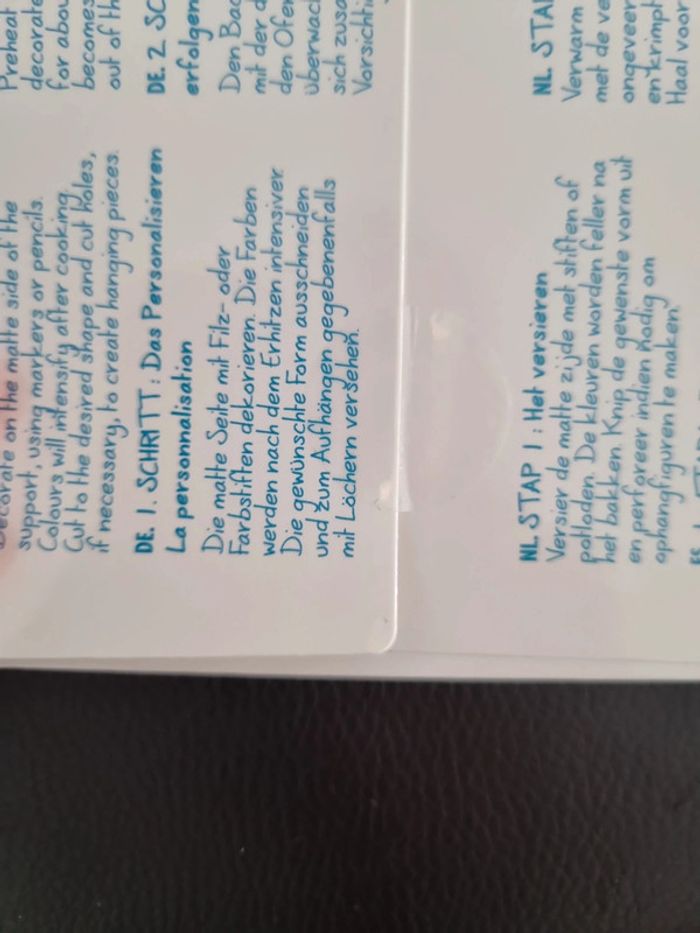 Decorate on the matte side of the
support, using markers or pencils.
Colours will intensify after cooking.
Cut to the desired shape and cut holes,
if necessary, to create hanging pieces.
DE. 1. SCHRITT : Das Personalisieren
La personnalisation
Die matte Seite mit Filz- oder
Farbstiften dekorieren. Die Farben
werden nach dem Erhitzen intensiver.
Die gewünschte Form ausschneiden
und zum Aufhängen gegebenenfalls
mit Löchern versehen.
Preheat
decorate
for abou
becomes
out of th
DE. 2. SC
erfolgen
Den Bac
mit der d
den Ofen
überwac
sich zusa
Vorsichti
NL. STAP 1 : Het versieren
Versier de matte zijde met stiften of
potloden. De kleuren worden feller na
het bakken. Knip de gewenste vorm uit
en perforeer indien nodig om
ophangfiguren te maken.
NL. STA
Verwarm
met de ve
ongeveer
en krimpt
Haal voor